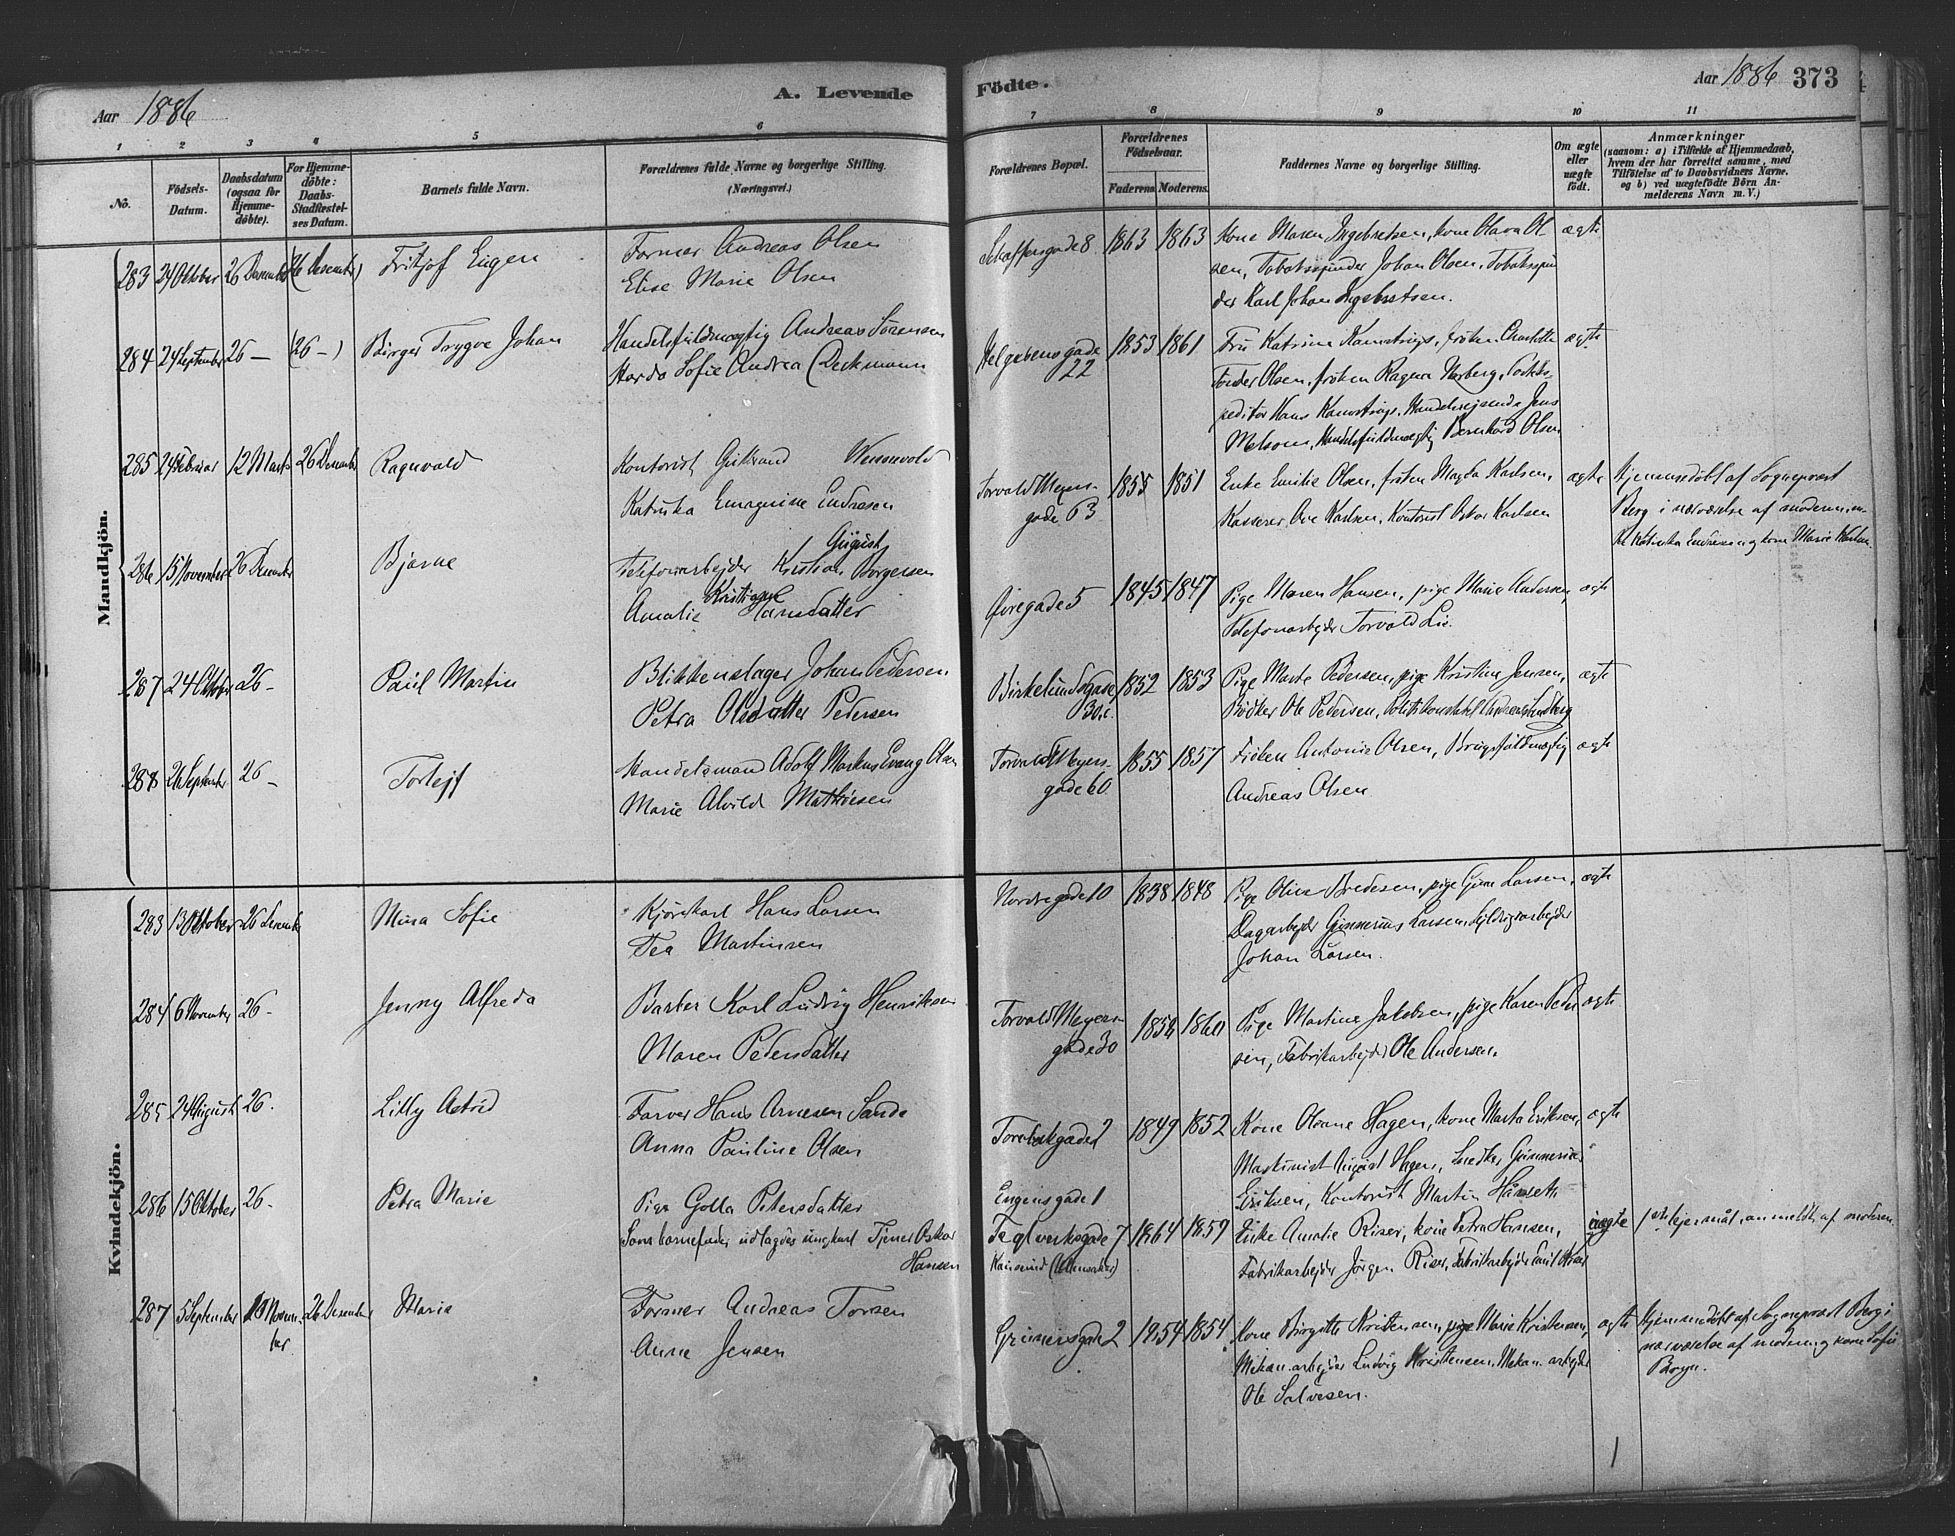 Aar 1886
A. Levende
Födte.
Aar 1886 373
1 2 3 4 5 6 7 8 9 10 11
No.
Födsels-Datum.
Daabsdatum (ogsaa for Hjemmedöbte).
For Hjemmedöbte: Daabs-Stadfæstelses Datum.
Barnets fulde Navn.
Forældrenes fulde Navne og borgerlige Stilling. (Næringsvei.)
Forældrenes Bopæl.
Forældrenes Födselsaar.
Faderens. Moderens.
Faddernes Navne og borgerlige Stilling.
Om ægte eller uægte födt.
Anmærkninger
(saasom: a) i Tilfælde af Hjemmedaab, hvem der har forrettet samme, med Tilföielse af to Daabsvidners Navne. og b) ved uægtefödte Börn Anmelderens Navn m. V.)
Mandkjön.
283 24 Oktober 26 December (26 Desember) Fritjof Eugen
Former Andreas Olsen
Elise Marie Olsen
Schaffersgade 8 1863 1863
Kone Maren Ingebretsen, kone Olava Ol
sen, Tobakspinder Johan Olsen, Tobakspin
der Karl Johan Ingebretsen.
ægte
284 24 September 26 — (26 —) Birger Trygve Johan
Handelsfuldmægtig Andreas Sörensen
Sofie Andrea Deckmann
Helgesensgade 22 1853 1861
Fru Katrine Kamstrup, fröken Charlotte
Olsen, fröken Ragna Norberg,
Hans Kamstrup, Handelsrejsende Jens
Melsom, Handelsfuldmægtig Bernhard Olsen
ægte
285 24 Februar 12 Marts 26 Desember Ragnvald
Kontorist Gulbrand
Katinka Emagrine Endresen
Torvald Meyers-
gade 63 1855 1851
Enke Emilie Olsen, fröken Magda Karlsen,
Kasserer Ove Karlsen, Kontorist Oskar Karlsen
ægte
Hjemmedöbt af Sogneprest
Berg i nærværelse af moderen
Katinka Endresen og kone Marie Karlsen
286 15 November 26 Desember Bjarne
August
Telefonarbejder Kristian Borgersen
Kristiane
Amalie Hansdatter
Övregade 5 1845 1847
Pige Maren Hansen, pige Marie Andersen,
Telefonarbejder Torvald Lie.
ægte
287 24 Oktober 26 – Paul Martin
Blikkenslager Johan Pedersen
Petra Olsdatter Pedersen
Birkelundsgade
30c. 1852 1853
Pige Marte Pedersen, pige Kristine Jensen,
Bödker Ole Pedersen, Politikonstabel Andreas Lundberg
ægte
288 26 September 26 – Torlejf
Handelsmand Adolf Markus Evang Olsen
Marie Alvild Mathisen
Torvald Meyers-
gade 60 1855 1857
Fröken Antonie Olsen, Brugsfuldmægtig
Andreas Olsen
ægte
Kvindekjön.
283 13 Oktober 26 Desember Mina Sofie
Kjörekarl Hans Larsen
Tea Martinsen
Nordregade 10 1838 1848
Pige Oline Bredesen, pige Gina Larsen,
Dagarbejder Gunnerius Larsen,
Johan Larsen.
ægte
284 6 November 26 – Jenny Alfreda
Barber Karl Ludvig Henriksen
Maren Pedersdatter
Torvald Meyers-
gade 30 1856 1860
Pige Martine Jakobsen, pige Karen Peder
sen, Fabrikarbejder Ole Andersen.
ægte
285 24 August 26. Lilly Astrid
Farver Hans Arnesen Sande
Anna Pauline Olsen
Toftesgade 2 1849 1852
Kone Olsane Hagen, kone Marta Eriksen,
Maskinist August Hagen, Snedker Gunnerius
Eriksen, Kontorist Martin
ægte
286 15 Oktober 26. Petra Marie
Pige Golla Petersdatter
Som barnefader udlagdes ungkarl Tjener Oskar
Hansen
Engensgade 1
Teglverksgade 7 1864 1859
Enke Amalie Riser, kone Petra Hansen,
Fabrikarbejder Jörgen Riser, Fabrikarbejder Emil
uægte
1ste lejermaal, anmeldt af moderen
287 5 September 10 Novem-
ber 26 Desember Maria
Former Andreas Torsen
Anne Jensen
Grünersgade 2 1854 1854
Kone Birgitte Kristensen, pige Marie Kristensen,
Mekan. arbejder Ludvig Kristensen, Mekan. arbejder
Ole Salvesen.
ægte
Hjemmedöbt af Sogneprest Berg i
nærværelse af moderen og kone Sofie